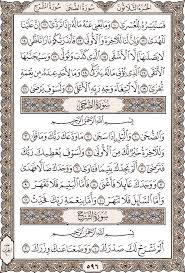 الجُزْءُ الثَّلَاثُونَ سُورَةُ الضُّحَى سُورَةُ الشَّرْحِ
فَسَنُيَسِّرُهُۥ لِلْعُسْرَىٰ ١٠ وَمَا يُغْنِى عَنْهُ مَالُهُۥٓ إِذَا تَرَدَّىٰٓ ١١ إِنَّ عَلَيْنَا
لَلْهُدَىٰ ١٢ وَإِنَّ لَنَا لَلْـَٔاخِرَةَ وَٱلْأُولَىٰ ١٣ فَأَنذَرْتُكُمْ نَارًا تَلَظَّىٰ ١٤
لَا يَصْلَىٰهَآ إِلَّا ٱلْأَشْقَى ١٥ ٱلَّذِى كَذَّبَ وَتَوَلَّىٰ ١٦ وَسَيُجَنَّبُهَا
ٱلْأَتْقَى ١٧ ٱلَّذِى يُؤْتِى مَالَهُۥ يَتَزَكَّىٰ ١٨ وَمَا لِأَحَدٍ عِندَهُۥ مِن نِّعْمَةٍ
تُجْزَىٰٓ ١٩ إِلَّا ٱبْتِغَآءَ وَجْهِ رَبِّهِ ٱلْأَعْلَىٰ ٢٠ وَلَسَوْفَ يَرْضَىٰ ٢١
سُورَةُ الضُّحَىٰ
بِسْمِ ٱللَّهِ ٱلرَّحْمَٰنِ ٱلرَّحِيمِ
وَٱلضُّحَىٰ ١ وَٱلَّيْلِ إِذَا سَجَىٰ ٢ مَا وَدَّعَكَ رَبُّكَ وَمَا قَلَىٰ ٣
وَلَلْـَٔاخِرَةُ خَيْرٌ لَّكَ مِنَ ٱلْأُولَىٰ ٤ وَلَسَوْفَ يُعْطِيكَ رَبُّكَ
فَتَرْضَىٰٓ ٥ أَلَمْ يَجِدْكَ يَتِيمًا فَـَٔاوَىٰ ٦ وَوَجَدَكَ ضَآلًّا فَهَدَىٰ
٧ وَوَجَدَكَ عَآئِلًا فَأَغْنَىٰ ٨ فَأَمَّا ٱلْيَتِيمَ فَلَا تَقْهَرْ ٩
وَأَمَّا ٱلسَّآئِلَ فَلَا تَنْهَرْ ١٠ وَأَمَّا بِنِعْمَةِ رَبِّكَ فَحَدِّثْ ١١
سُورَةُ الشَّرْحِ
بِسْمِ ٱللَّهِ ٱلرَّحْمَٰنِ ٱلرَّحِيمِ
أَلَمْ نَشْرَحْ لَكَ صَدْرَكَ ١ وَوَضَعْنَا عَنكَ وِزْرَكَ ٢
٥٩٦